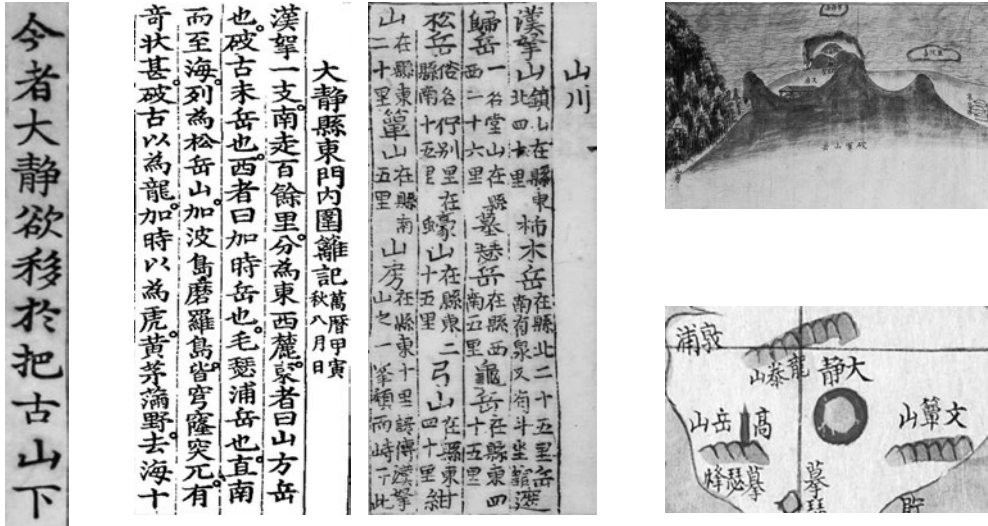 今者大静欲移於把古山下
大静縣東門內圍籬記 萬曆甲寅秋八月日
漢拏一支。南走百餘里。分為東西麓。東者曰山方岳
也。破古未岳也。西者曰加時岳也。毛瑟浦岳也。直南
而至海。列為松岳山。加波島。磨羅島。皆穹窿突兀。有
竒状甚。破古以為龍。加時以為虎。黃茅滿野。去海十
山川
漢拏山 鎭山在縣東北四十里 柿木岳 在縣北二十五里岳南有泉又有斗坐
歸岳 一名堂山在縣西二十六里 墓瑟岳 在縣西南五里 龜岳 在縣東四十五里
松岳 俗名 別里在縣南十五里 山 在縣東二十五里 弓山 在縣東四十里 紺
山 在縣東二十里 簞山 在縣南五里 山房 在縣東十里諺傳漢拏山之一峯顚而峙于此
敦浦
龍泰山
大静
高岳山
文簞山
摹瑟烽
摹瑟
貯